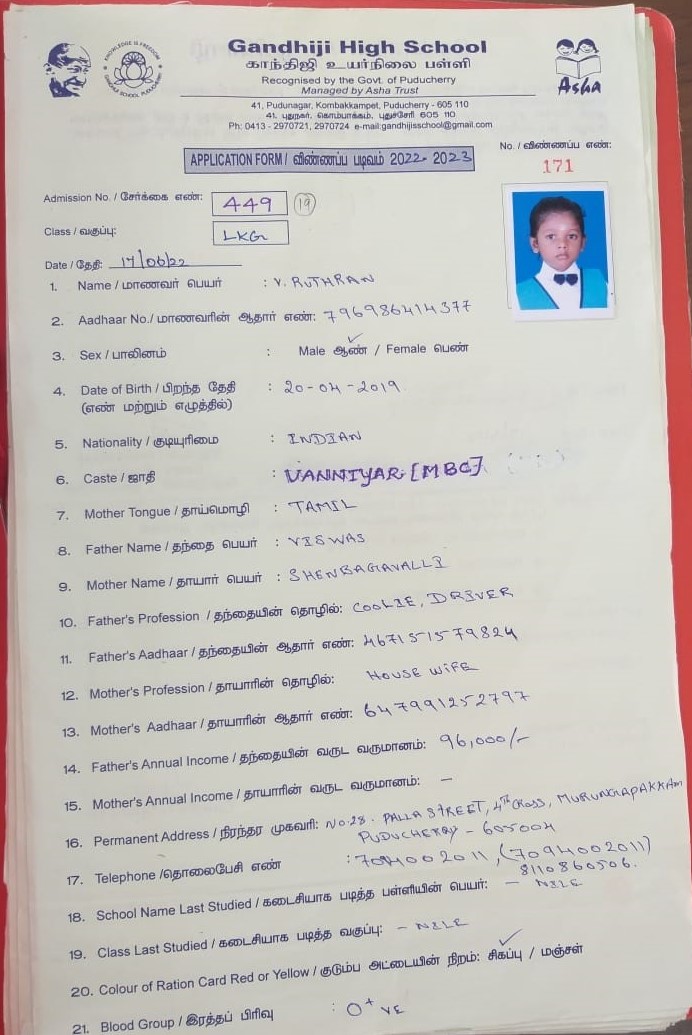 Gandhiji High School
காந்திஜி உயர்நிலை பள்ளி
Recognised by the Govt. of Puducherry
Managed by Asha Trust
KNOWLEDGE IS FREEDOM
GANDHIJI SCHOOL PUDUCHERRY
Asha
41, Pudunagar, Kombakkampet, Puducherry - 605 110
41, புதுநகர், கொம்பாக்கம், புதுச்சேரி 605 110
Ph: 0413 - 2970721, 2970724 e-mail:gandhijisschool@gmail.com
APPLICATION FORM / விண்ணப்ப படிவம் 2022-2023
No. / விண்ணப்ப எண்:
171
Admission No. / சேர்க்கை எண்: 449 (19)
Class / வகுப்பு: LKG
Date / தேதி: 17/06/22
1. Name / மாணவர் பெயர் : V. RUTHRAN
2. Aadhaar No./ மாணவரின் ஆதார் எண்: 796986414377
3. Sex / பாலினம் : Male ஆண் / Female பெண்
4. Date of Birth / பிறந்த தேதி : 20-04-2019
(எண் மற்றும் எழுத்தில்)
5. Nationality / குடியுரிமை : INDIAN
6. Caste / ஜாதி : VANNIYAR [MBC]
7. Mother Tongue / தாய்மொழி : TAMIL
8. Father Name / தந்தை பெயர் : VISWAS
9. Mother Name / தாயார் பெயர் : SHENBAGAVALLI
10. Father's Profession / தந்தையின் தொழில்: COOLIE, DRIVER
11. Father's Aadhaar / தந்தையின் ஆதார் எண்: 467151579824
12. Mother's Profession / தாயாரின் தொழில்: HOUSE WIFE
13. Mother's Aadhaar / தாயாரின் ஆதார் எண்: 647991252797
14. Father's Annual Income / தந்தையின் வருட வருமானம்: 96,000/-
15. Mother's Annual Income / தாயாரின் வருட வருமானம்: -
16. Permanent Address / நிரந்தர முகவரி: No.28. PALLA STREET, 4th CROSS, MURUNGAPAKKAM
PUDUCHERRY - 605004
17. Telephone /தொலைபேசி எண் : 7094002011, (7094002011)
8110860506.
18. School Name Last Studied / கடைசியாக படித்த பள்ளியின் பெயர்: - NILE
19. Class Last Studied / கடைசியாக படித்த வகுப்பு: - NILE
20. Colour of Ration Card Red or Yellow / குடும்ப அட்டையின் நிறம்: சிகப்பு / மஞ்சள்
21. Blood Group / இரத்தப் பிரிவு : O+ VE